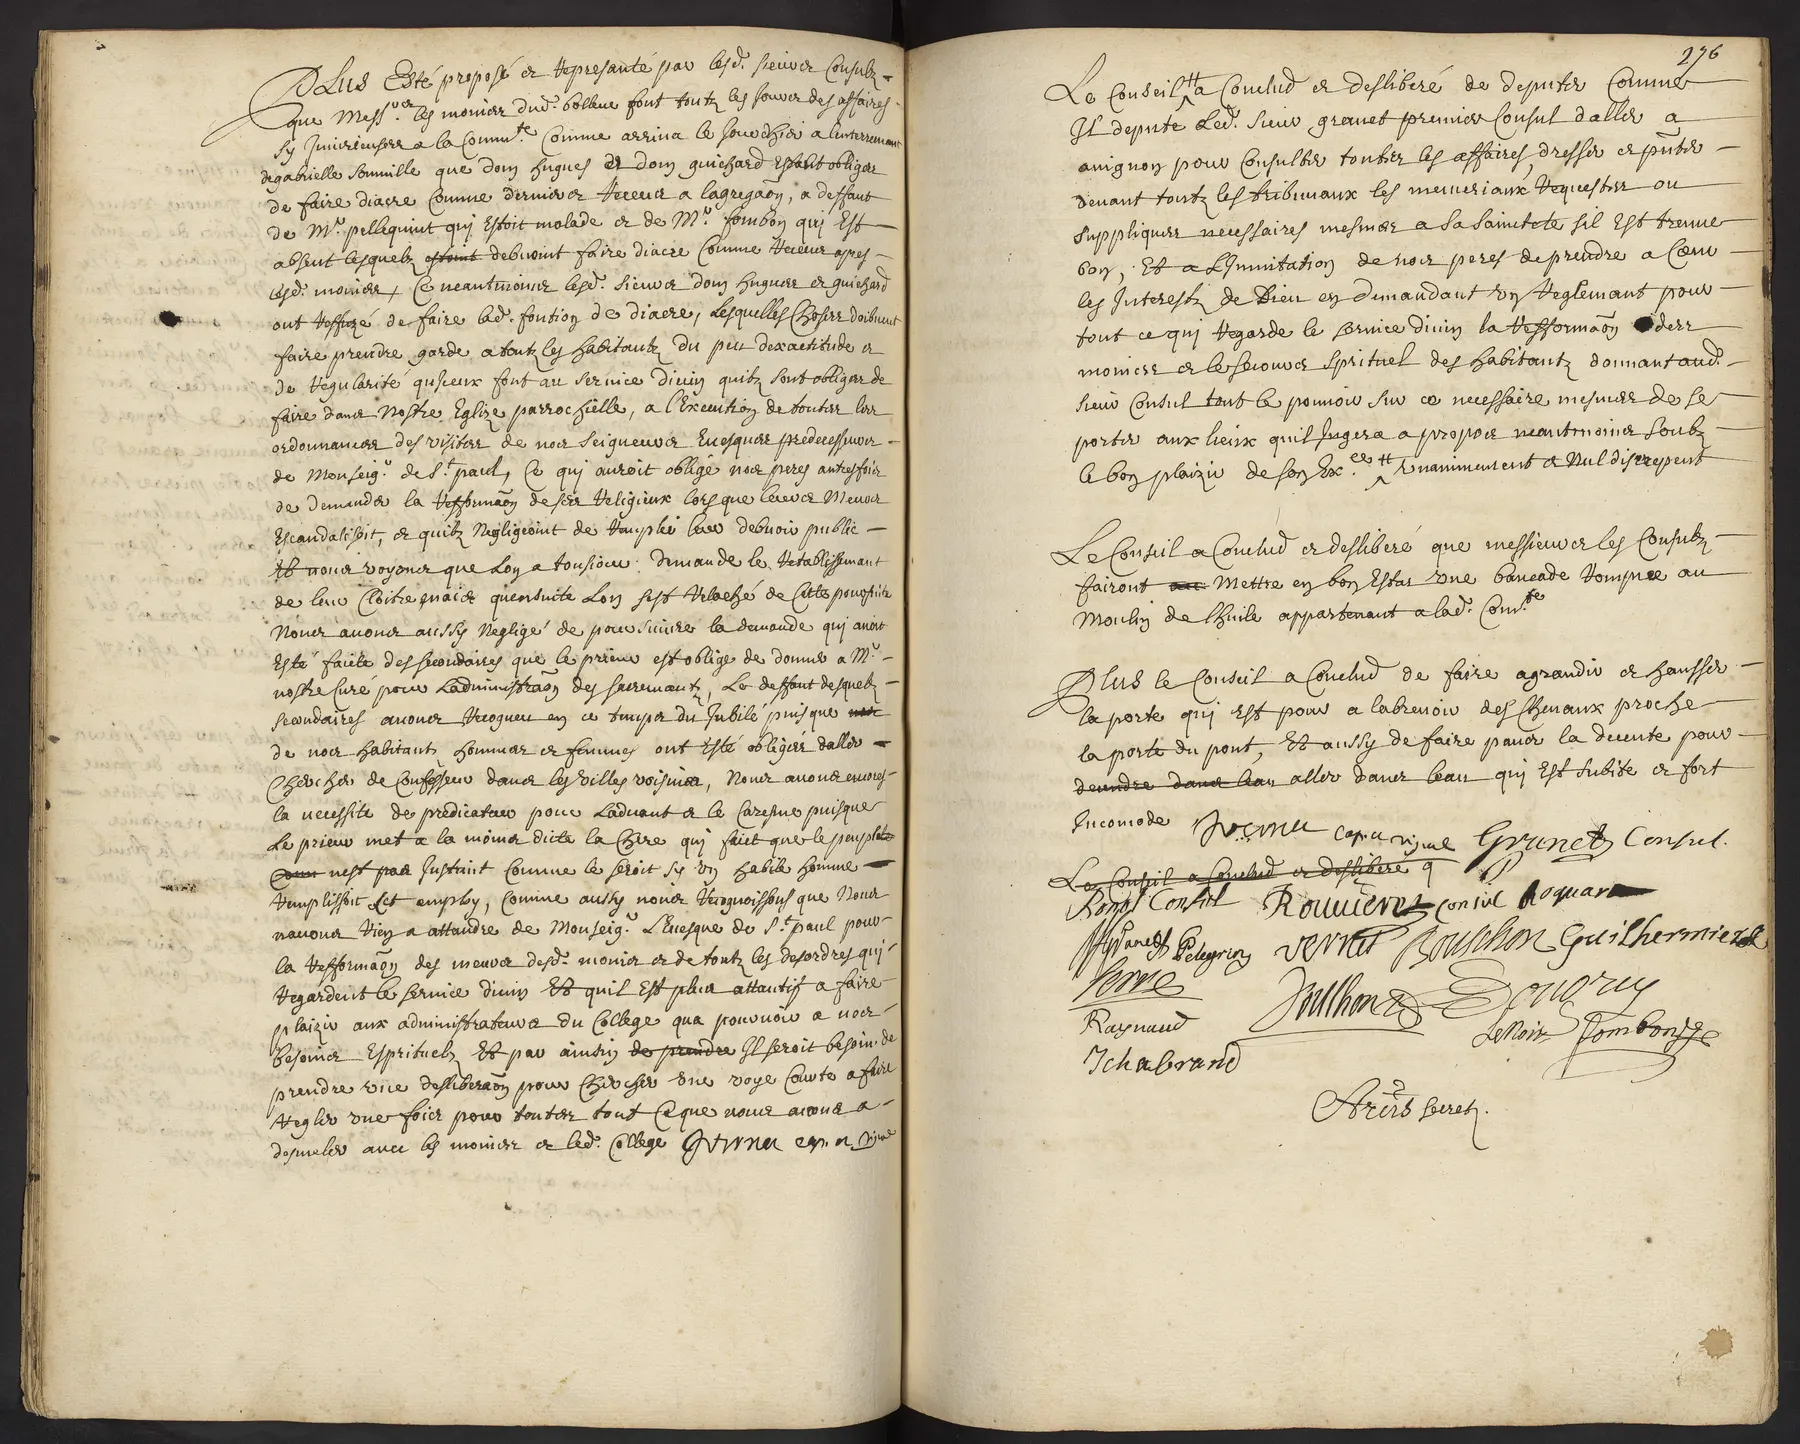 Plus Esté proposé et Represanté par lesd. sieurs Consulz
que Mess.rs les moines dud. bollene font toutz les jours des affaires
sy Iniurieuses a la Commu.té Comme arriua le Jour dhier a lenterremant
de gabrielle Soumille que dom hugues et dom guichard estant obliges
de faire diacre Comme derniers Receus a lagregaon, a deffaut
de Mr. pellequint quj Estoit malade et de Mr. Combon quj Est
absent lesquelz estoint debuoint faire diacre Comme Receus apres
lesd. moines, Ce neantmoins lesd. sieurs dom hugues et guichard
ont Reffuzé de faire lad. fontion de diacre, Lesquelles Choses doibuent
faire prendre garde a toutz les habitantz du peu dexactitude et
de Regularité quiceux font au seruice diuin quilz sont obliges de
faire dans nostre Eglize parrochielle, a l'Execution de toutes les
ordonnances des visites de nos seigneurs Euesques predecesseurs
de Monseig.r de S.t paul, Ce quj auroit obligé nos peres autresfois
de demander la Refformaon de ses Religieux lors que leurs Meurs
Escandalisoit, et quilz Negligeoint de Remplir leur debuoir public
Et nous voyons que Lon a tousiours demandé le Retablissemant
de leur Cloitre mais quensuite Lon sest Relaché de Cette poursuite
Nous auons aussy Negligé de poursuiure la demande quj auoit
Esté faicte des secondaires que le prieur est oblige de donner a Mr.
nostre Curé pour Ladministraon des sacremantz, Le deffaut desquelz
secondaires auons Recogneu en ce temps du Jubilé puis que
de nos habitants hommes et femmes ont Esté obligés daller
Chercher de Confesseur dans les villes voisines, Nous auons encores
la necessite de predicateur pour Laduant et le Caresme puisque
Le prieur met a la moins dicte la Chere quj faict que le peuple
nest pas Instruit Comme le seroit sy un habile homme
Remplissoit Cet employ, Comme aussy nous Recognoissons que Nous
nauons Rien a attandre de Monseig.r LEuesque de S.t paul pour
la Refformaon des meurs desd. moines et de toutz les desordres quj
Regardent le seruice diuin Et quil Est plus attantif a faire
plaizir aux administrateurs du College qua pouruoir a nos
besoins Esprituelz Et par ainsin de prendre Il seroit besoin de
prendre vne desliberaon pour Chercher vne voye Courte a faire
Regler vne fois pour toutes tout Ce que nous auons a
desmeler auec les moines et led. College

276
Le Conseil a Conclud et deslibéré de deputer Comme
Il depute Led. sieur granet premier Consul daller a
auignon pour Consulter toutes les affaires, dresser et pnter
deuant toutz les tribunaux les memoriaux, Requestes ou
suppliques necessaires mesmes a sa saintete sil est treuue
bon, Et a LImitation de nos peres de prendre a Coeur
les Interestz de Dieu en demandant vn Reglemant pour
tout ce quj Regarde le seruice diuin la Refformaon des
moines et le secours sprituel des habitantz donnant aud.
sieur Consul tout le pouuoir sur ce necessaire mesmes de se
porter aux lieux quil Jugera a propos neantmoins soubz
le bon plaizir de son Ex.ce Vnanimement et Nul discrepent
Le Conseil a Conclud et deslibéré que messieurs les Consulz
fairont Mettre en bon Estat vne bancade Rompue au
Moulin de lhuile appartenant a lad. Com.té
Plus le Conseil a Conclud de faire agrandir et hausser
la porte quj Est pour a labreuoir des Cheuaux proche
la porte du pont, Et aussy de faire pauer la decente pour
decendre dans leau aller dans leau quj Est subite et fort
Incomode
Granet Consul.
Le Conseil a Conclud et desliberé q
Consul Rouuieres Consul Roquard
Granet Pelegrin vernet Bouschon Guilhermier
Serre
Raynaud
LeNoir Combon
Ichabrand
secret.